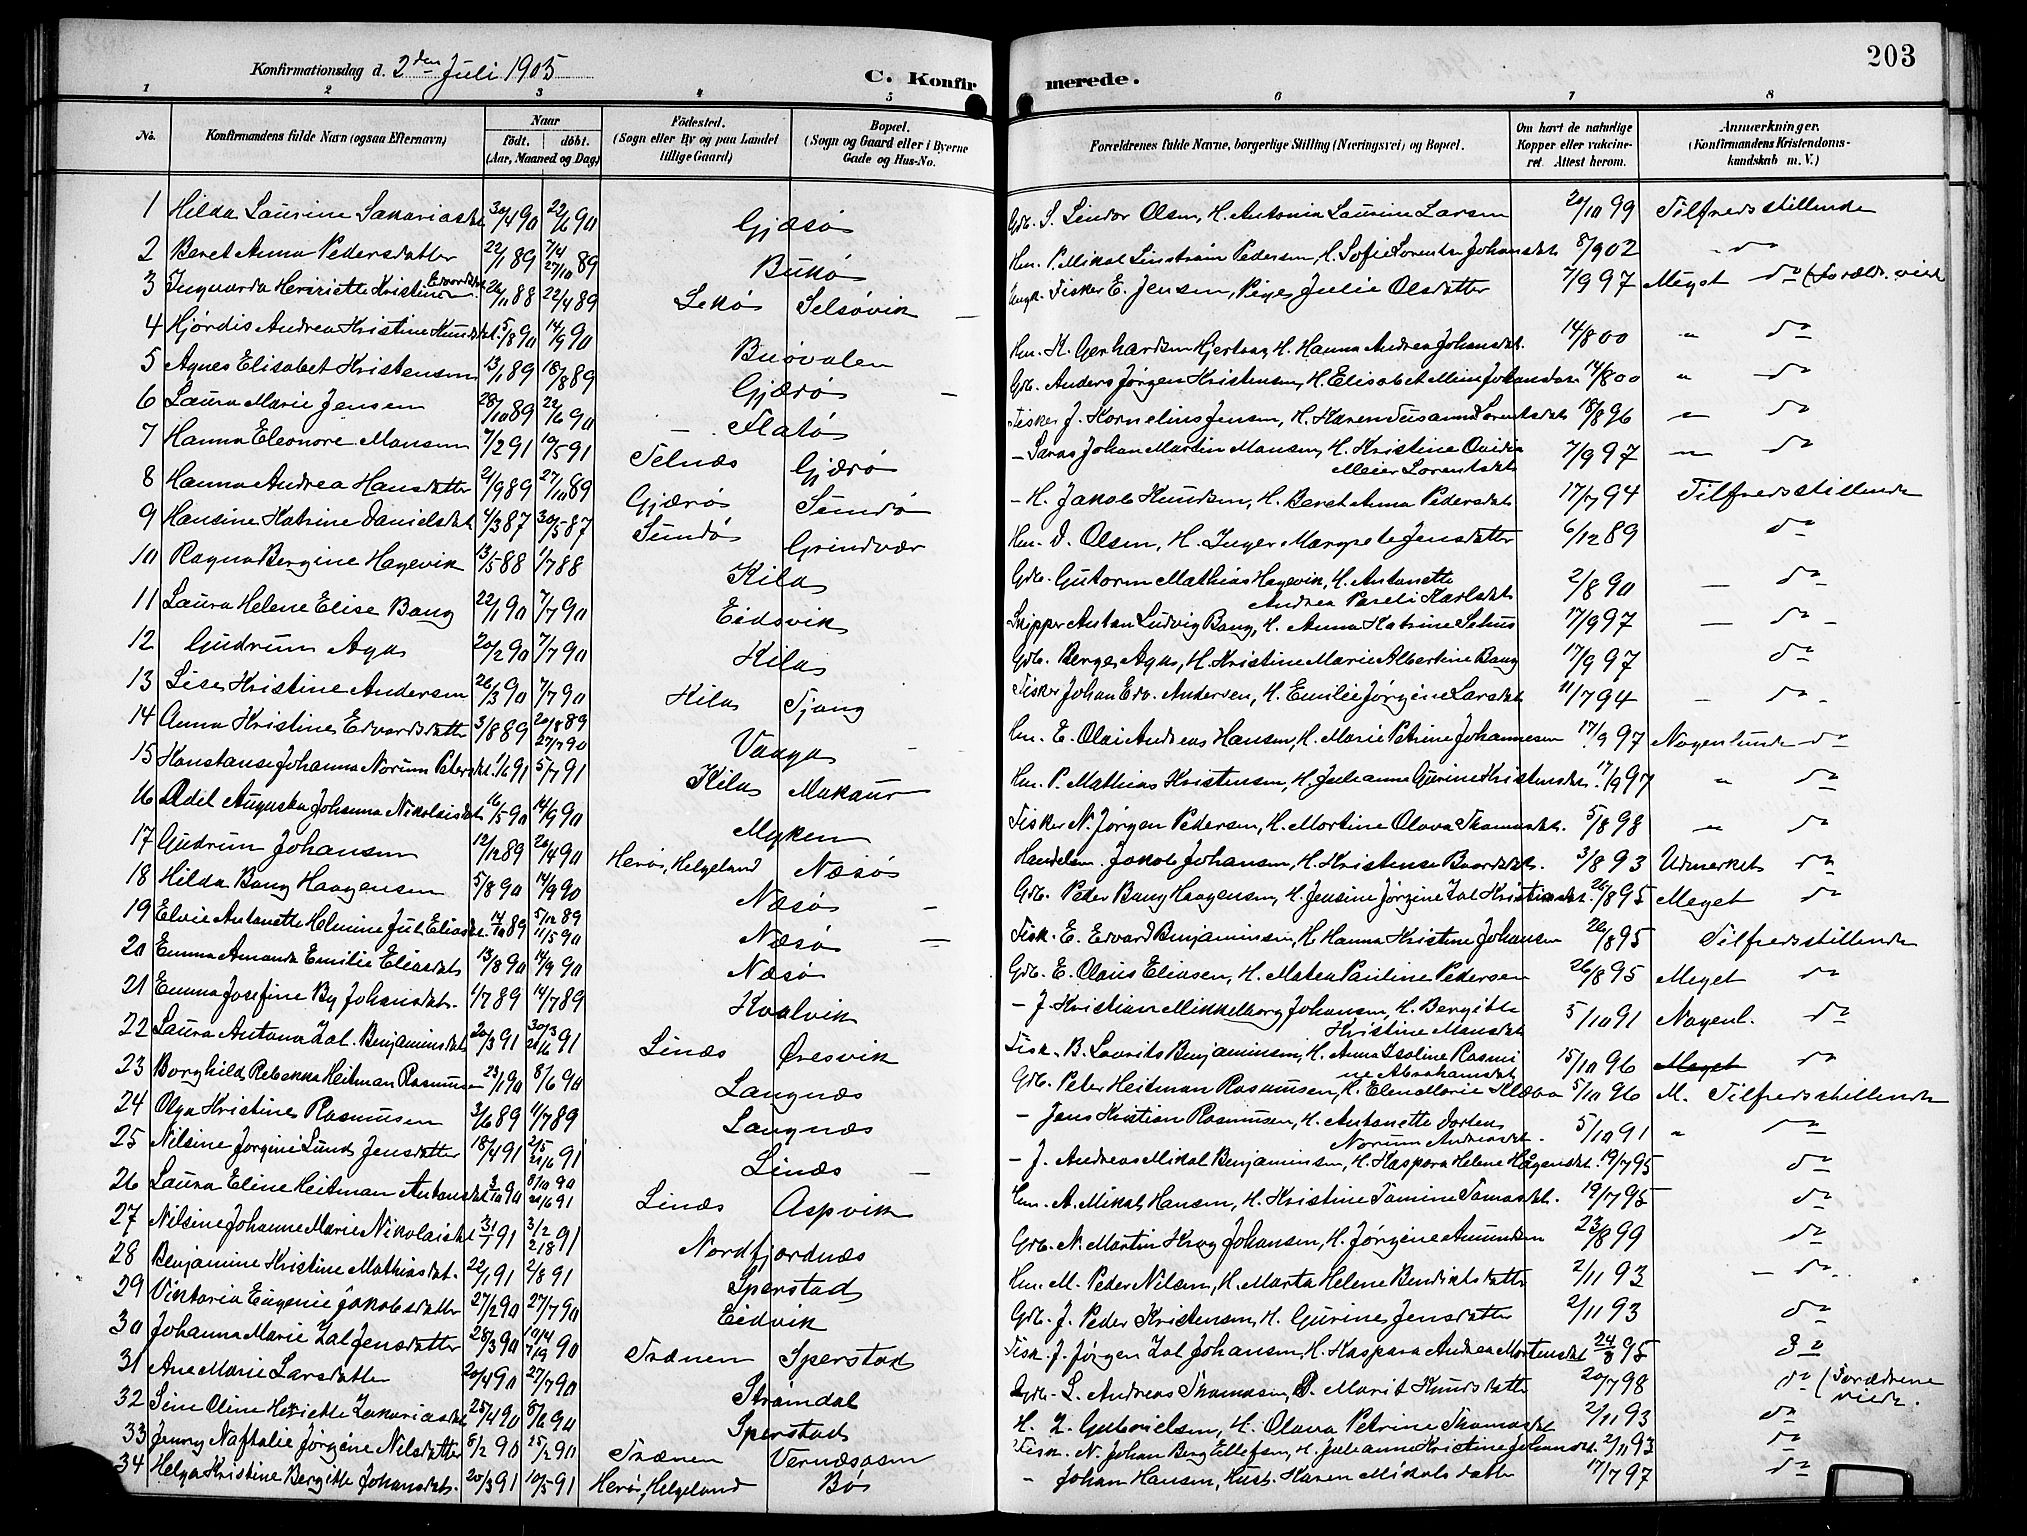 203
Konfirmationsdag d. 2den Juli 1905
C. Konfirmerede.
1 2 3 4 5 6 7 8
No. Konfirmandens fulde Navn (ogsaa Efternavn) Naar født. døbt. (Aar, Maaned og Dag) Fødested. (Sogn eller By og paa Landet tillige Gaard) Bopæl. (Sogn og Gaard eller i Byerne Gade og Hus-No. Forældrenes fulde Navne, borgerlige Stilling (Næringsvei) og Bopæl. Om havt de naturlige Kopper eller vaccineret. Attest herom. Anmærkninger. (Konfirmandens Kristendomskundskab m. V.)
1 Hilda Laurine Sakariasdt 30/4 90 22/6 90 Gjæsø Gdb. S. Lindor Olsen, H. Antonia Laurine Larsen 20/10 99 Tilfredsstillende
2 Beret Anna Pedersdatter 22/1 89 7/4 27/10 89 Bukø Hm. P. Mikal Linstrøm Pedersen, H. Sofie Lorentse Johansdt 8/9 02 do
3 Ingvarda Henriette Kristine Edvardsdt 26/11 88 22/4 89 Lekø Selsøvik Ungk. Fisker E. Jensen, Pige Julie Olsdatter 7/9 97 Meget do (Foræld. viet
4 Hjørdis Andrea Kristine Knudsdt 5/8 90 14/9 90 Buøvalen Hm. K. Gerhardsen Hjertaas, H. Hanna Andrea Johansdt. 14/8 00 " do
5 Agnes Elisabet Kristensen 13/1 89 18/8 89 Gjærø Gdb. Anders Jørgen Kristensen, H. Elisabet Meier Johansdt 14/8 00 " do
6 Laura Marie Jensen 28/10 89 22/6 90 Flatø Fisker J. Kornelius Jensen, H. Karen Susanna Lorentsdt 18/8 96 " do
7 Hanna Eleonore Monsen 7/2 91 10/5 91 Selnæs Gjærø - Johan Martin Monsen, H. Kristine Ovidia Meier Lorentsdt 7/9 97 " do
8 Hanna Andrea Hansdatter 21/9 89 27/10 89 Gjærø Sundø - H. Jakob Knudsen, H. Beret Anna Pedersdt 17/7 94 Tilfredsstillende
9 Hansine Katrine Danielsdt 4/3 87 30/5 87 Sundø Grindvær Hm. D. Olsen, H. Inger Margrete Jensdatter 6/12 89 do
10 Ragna Bergine Hagevik 13/5 88 1/7 88 Kila Gdb. Gutorm Mathias Hagevik, H. Antonette Andrea Pareli Karlsdt 2/8 90 - do -
11 Laura Helene Elise Bang 22/1 90 7/7 90 Eidsvik Skipper Anton Ludvig Bang, H. Anna Katrine Sehus 17/9 97 - do -
12 Gudrun Aga 20/2 90 7/7 90 Kila Gdb. Børge Aga, H. Kristine Marie Albertine Bang 17/9 97 do
13 Lise Kristine Andersen 26/3 90 7/7 90 Kila Tjong Fisker Johan Edv. Andersen, H. Emilie Jørgine Larsdt 11/7 94 - do
14 Anna Kristine Edvardsdatter 3/8 89 20/8 89 27/7 90 Vaaga Hm. E. Olai Andreas Hansen, H. Marie Petrine Johannesen 17/9 97 Nogenlunde do
15 Konstanse Johanna Norum Petersdt. 1/6 91 5/7 91 Kila Makaur Hm. P. Mathias Kristensen, H. Julianna Gurine Kristensdt. 17/9 97 " do
16 Adel Augusta Johanna Nikolaisdt 16/5 90 14/9 90 Myken Fisker N. Jørgen Pedersen, H. Mortine Olava Thomasdt. 5/8 98 " do
17 Gudrun Johansen 12/12 89 26/4 90 Herø, Helgeland Næsø Handelsm. Jakob Johansen, H. Kristense Baardsdt. 3/8 93 Udmerket do
18 Hilda Bang Haagensen 5/8 90 14/9 90 Næsø Gdb. Peder Bang Haagensen, H. Jensine Jørgine Zal Kristiansdt. 26/8 95 Meget do
19 Elvie Antonette Helmine Jul. Eliasdt. 17/10 89 5/12 89 11/5 90 Næsø Fisk. E. Edvard Benjaminsen, H. Hanna Kristine Johansen 26/8 95 Tilfredsstillende
20 Emma Amanda Emilie Eliasdt 13/8 90 14/9 90 Næsø Gdb. E. Olaus Eliasen, H. Matea Pauline Pedersen 26/8 95 Meget do
21 Emma Josefine By Johansdt. 1/7 89 14/7 89 Kvalvik - J. Kristian Mikkelborg Johansen, H. Bergitte Kristine Monsdt 5/10 91 Nogenl. do
22 Laura Antona Zal. Benjaminsdt 20/3 91 30/3 21/6 91 Linæs Øresvik Fisk. B. Lavrits Benjaminsen, H. Anna Isaline Rasmine Abrahamsdt 15/10 96 Meget do
23 Borghild Rebekka Heitman Rasmusen 23/1 90 8/6 90 Langnæs Gdb. Peter Heitman Rasmusen, H. Elen Marie Klæboe 5/10 96 M. Tilfredsstillende
24 Olga Kristine Rasmusen 3/6 89 1/7 89 Langnæs - Jens Kristian Rasmusen, H. Antonette Dortea Norum Andreasdt. 5/10 91 " do
25 Nilsine Jørgine Lund Jensdatter 18/4 91 2/5 21/6 91 Linæs - J. Andreas Mikal Benjaminsen, H. Kaspara Helene Hågensdt. 19/7 95 do
26 Laura Eline Heitman Antonsdt 3/10 90 8/10 90 21/6 91 Linæs Aspvik Hm. A. Mikal Hansen, H. Kristine Tomine Tomasdt. 19/7 95 do
27 Nilsine Johanne Marie Nikolaisdt 31/1 91 3/2 2/8 91 Nordfjordnæs Gdb. N. Martin Krog Johansen, H. Jørgine Amundsen 23/8 99 do
28 Benjamine Kristine Mathiasdt. 22/1 91 2/8 91 Sperstad Hm. M. Peder Nilsen, H. Marta Helene Bendiksdatter 2/11 93 - do
29 Viktoria Eugenie Jakobsdatter 27/2 90 27/7 90 Eidvik Gdb. J. Peder Kristensen, H. Gurine Jensdatter 2/11 93 do
30 Johanna Marie Zal Jensdatter 28/3 90 10/4 7/9 90 Trænen Sperstad Fisk. J. Jørgen Zal Johansen, H. Kaspara Andrea Mortensdt 24/8 95 do
31 Ane Marie Larsdatter 20/4 90 27/7 90 Strømdal Gdb. L. Andreas Thomasen, P. Marit Knudsdatter 20/7 98 do (Forældrene viede.
32 Sine Oline Henriette Zakariasdt 25/4 90 8/6 90 Sperstad H. Z. Gabrielsen, H. Olava Petrine Thomasdt 2/11 93 do
33 Jenny Naftalie Jørgine Nilsdatter 8/2 90 25/2 90 Trænen Vernæsosen Fisk. N. Johan Berg Ellefsen, H. Julianna Kristine Johansdt. 2/11 93 do
34 Helga Kristine Bergitte Johansdt. 20/3 91 10/5 91 Herø, Helgeland Bø - Johan Hansen, Hust. Karen Mikalsdatter 17/7 97 do